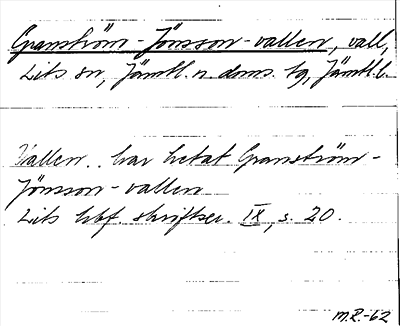 Granström-Jönsson-vallen, vall,
Lits sn, Jämtl. n. doms. tg, Jämtl. l.
Vallen.. har hetat Granström-
Jönsson-vallen
Lits hbf. skriftser. IX, s. 20.
M.R.-62